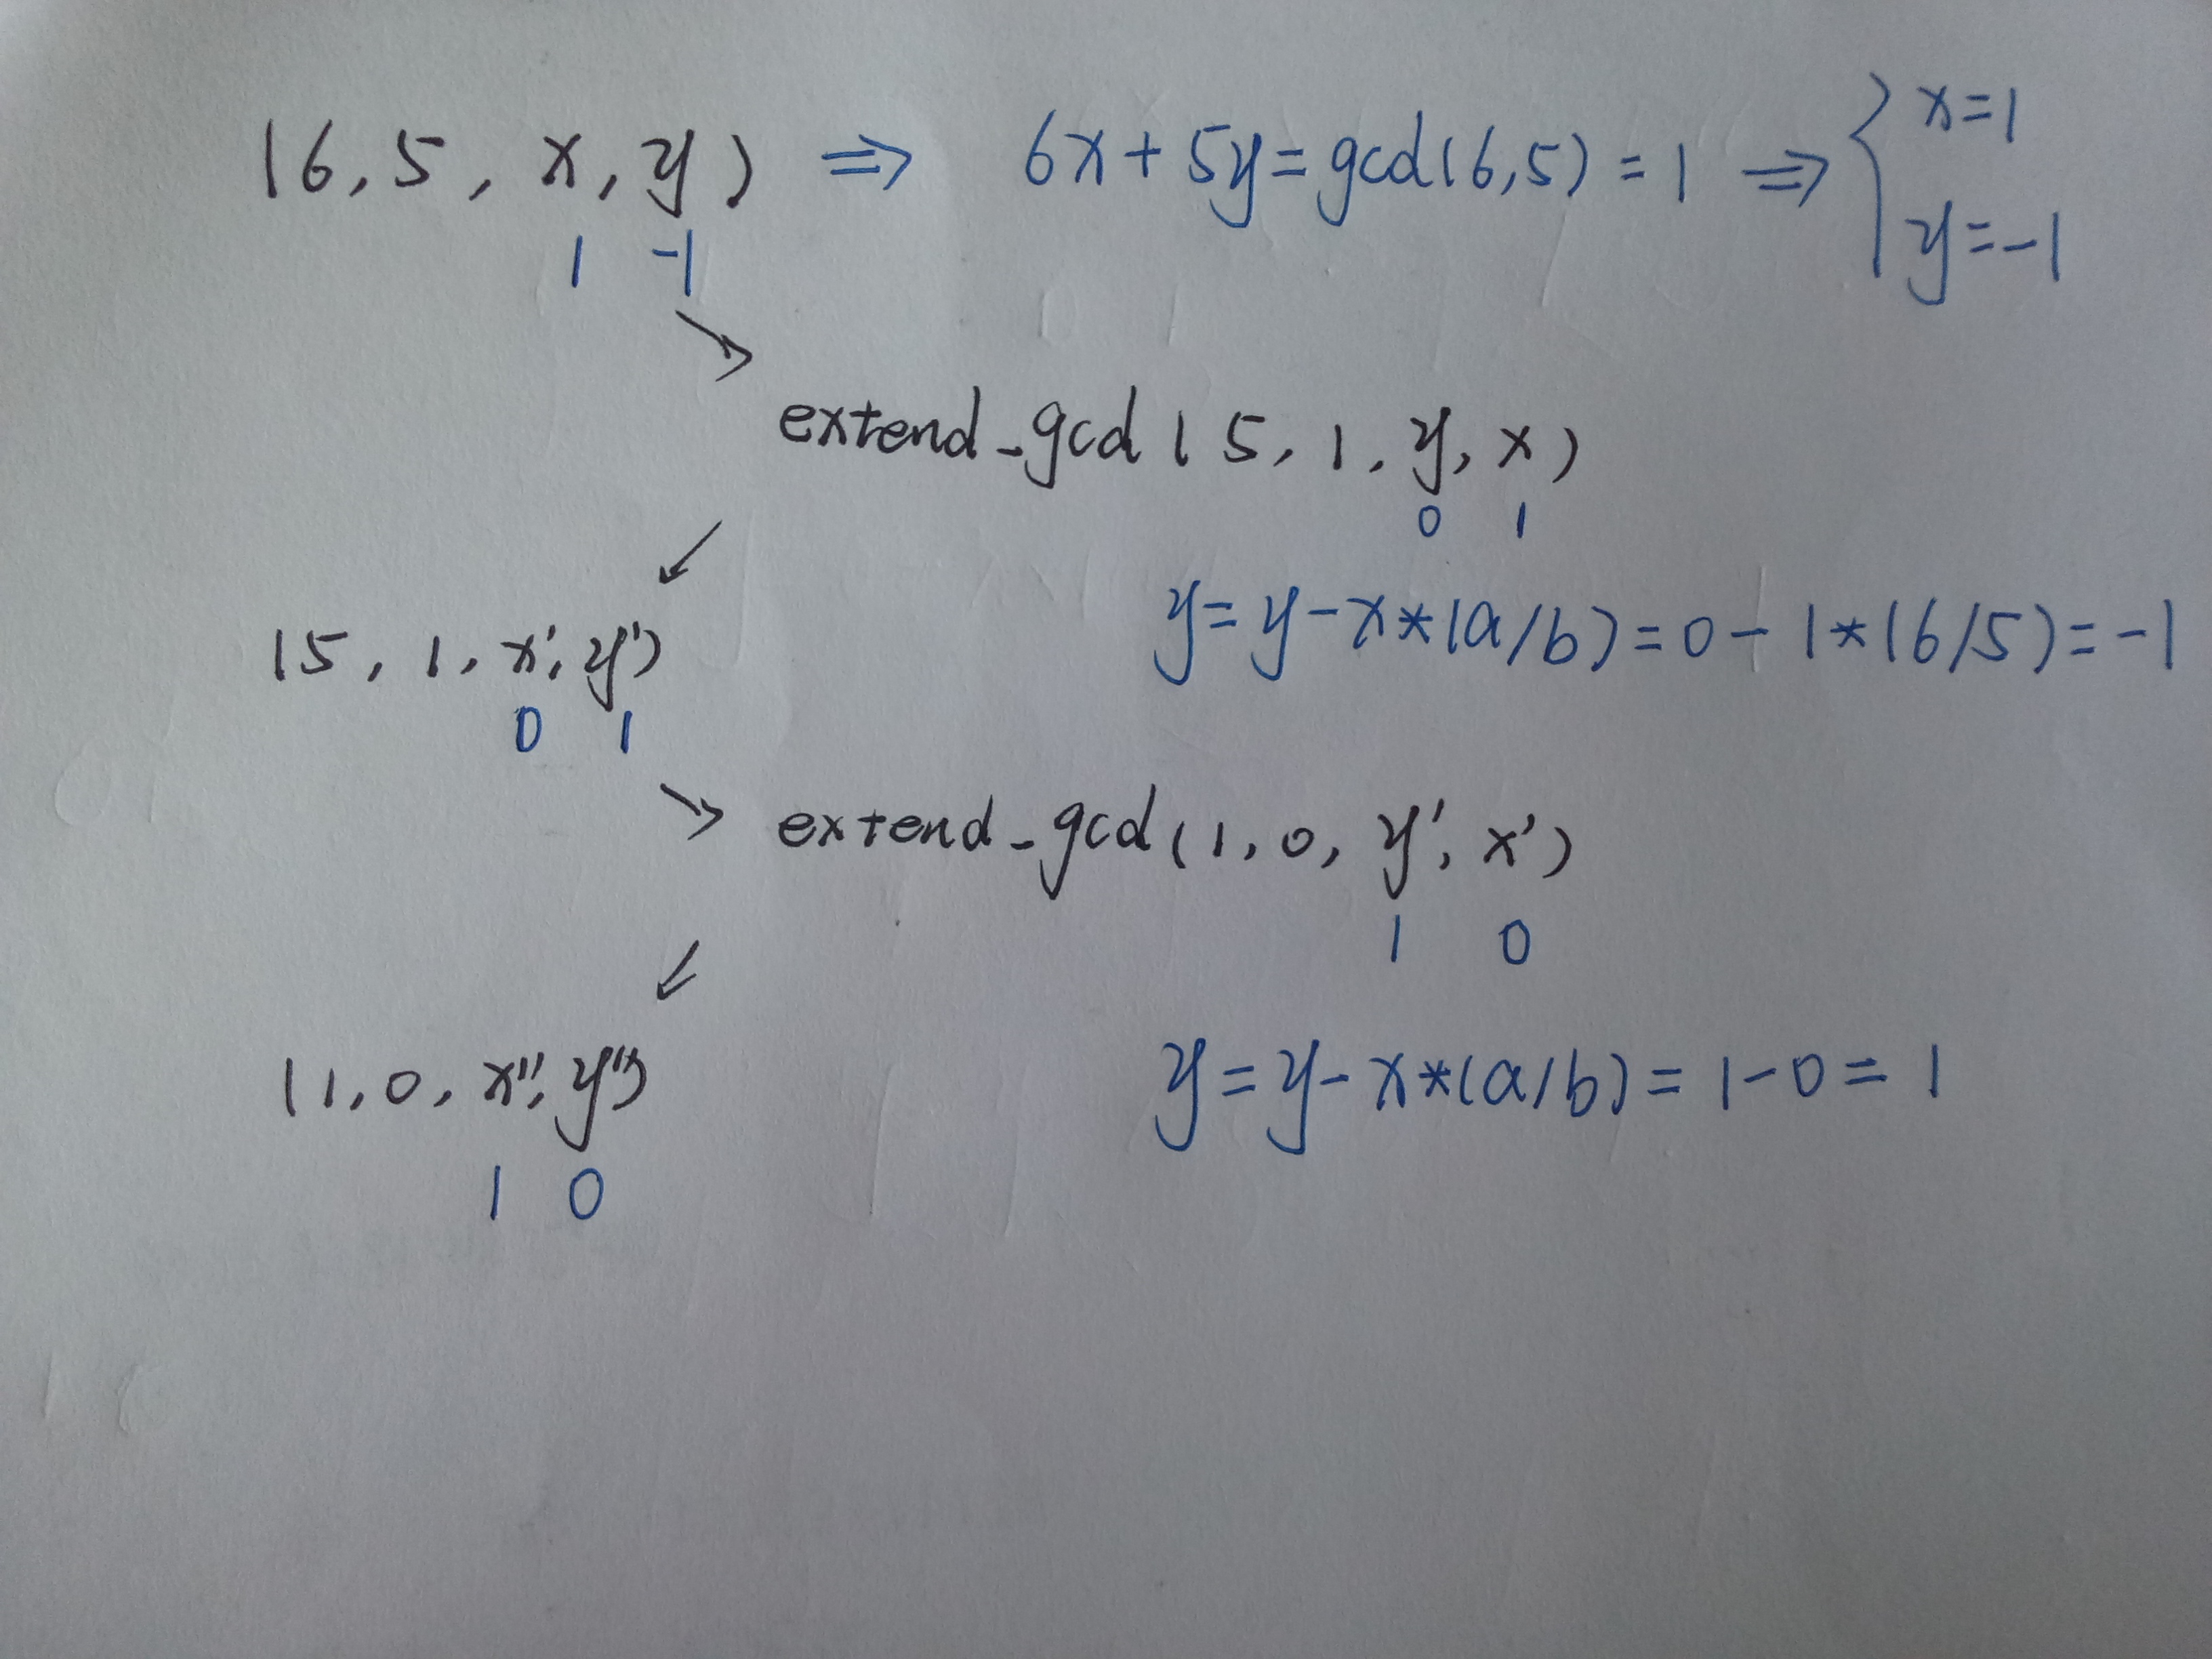 (6,5,x,y) ⇒ 6x+5y=gcd(6,5)=1 ⇒ { x=1
y=-1
1 -1
↘
extend_gcd(5,1,y,x)
0 1
↙
(5,1,x',y') y=y-x*(a/b)=0-1*(6/5)=-1
0 1
↘ extend_gcd(1,0,y',x')
1 0
↙
(1,0,x'',y'') y=y-x*(a/b)=1-0=1
1 0